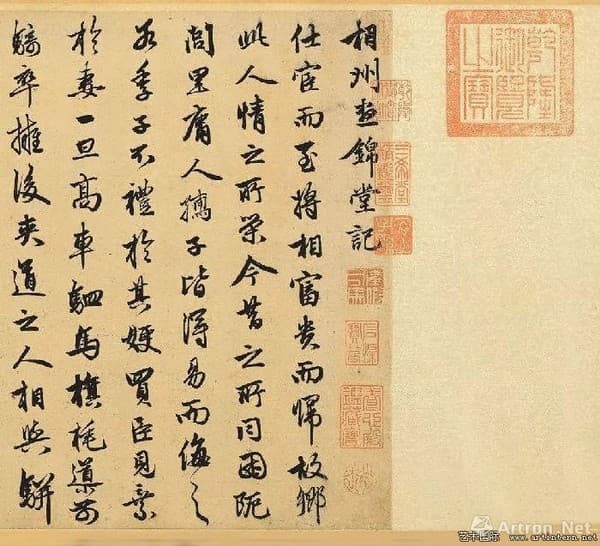 乾隆御覽之寶
相州晝錦堂記
仕宦而至將相富貴而歸故鄉
此人情之所榮今昔之所同困阨
閭里庸人孺子皆得易而侮之
若季子不禮於其嫂買臣見棄
於妻一旦高車駟馬旗旄導前
騎卒擁後夾道之人相與駢
三希堂精鑑璽
宜子孫
Artron.Net
艺术国际 www.artintern.net